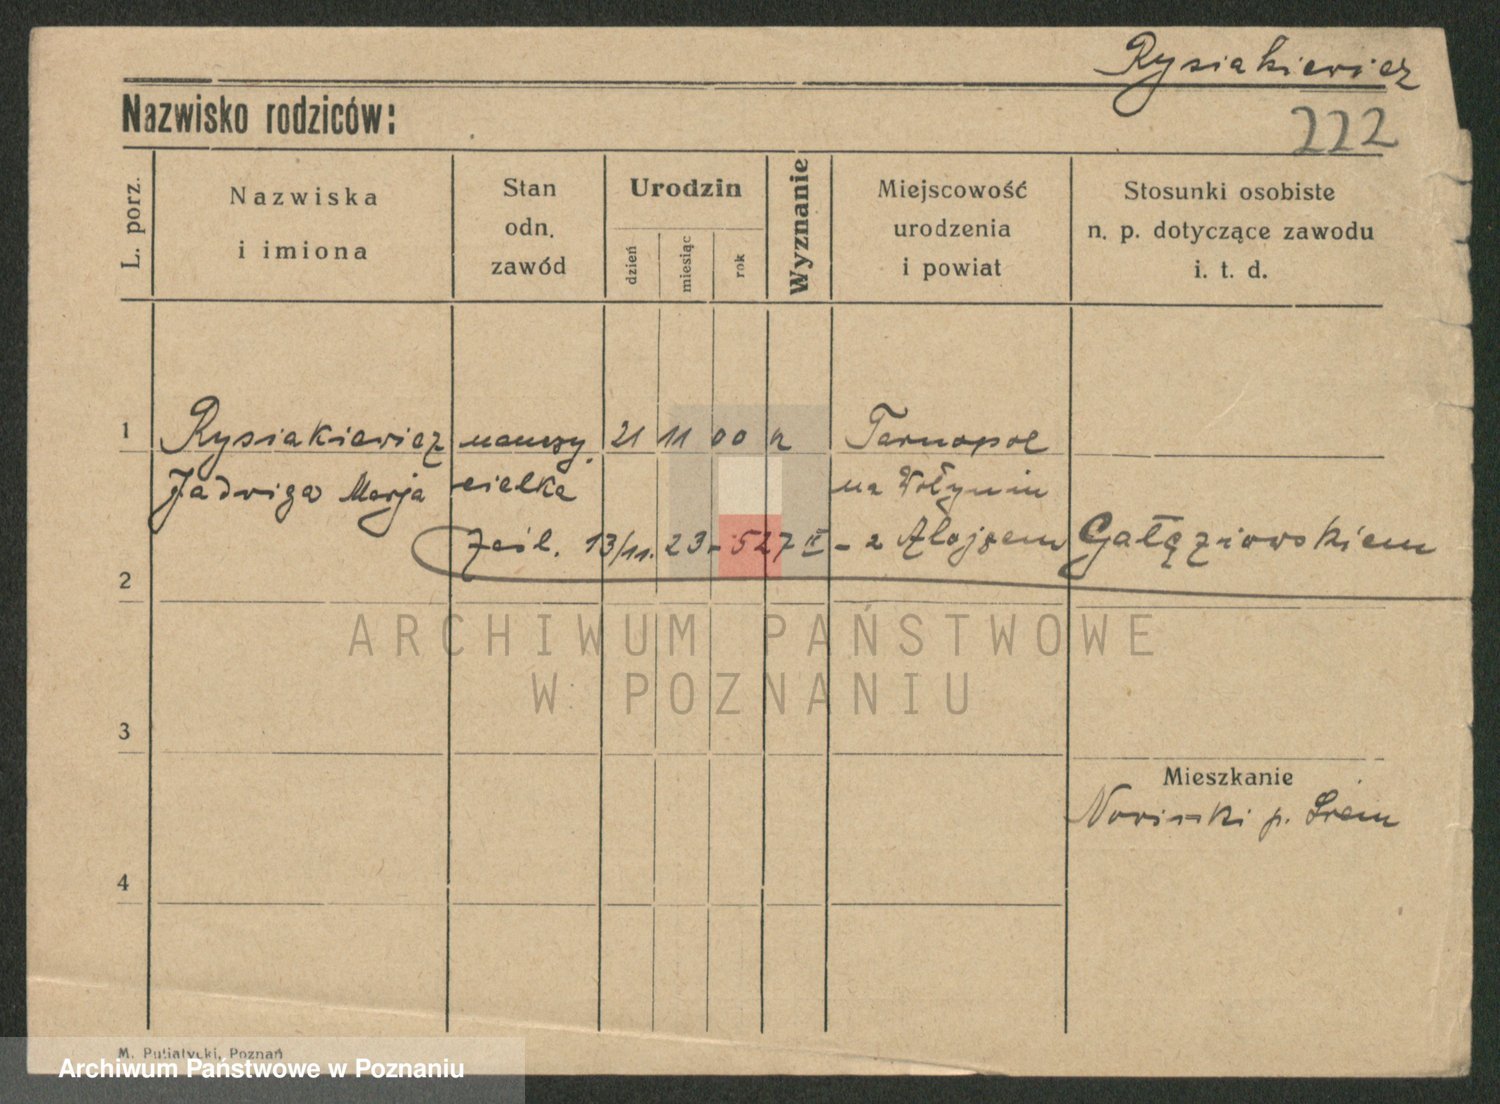 Rysiakiewicz
Nazwisko rodziców:
222
L. porz.
Nazwiska
i imiona
Stan
odn.
zawód
Urodzin
dzień
miesiąc
rok
Wyznanie
Miejscowość
urodzenia
i powiat
Stosunki osobiste
n. p. dotyczące zawodu
i. t. d.
1 Rysiakiewicz nauczy. 21 11 00 Tarnopol
Jadwiga Marja cielka na Wołyniu
zaśl. 13/11. 23 - 527 - z Alojzem Gałęziowskiem
2
ARCHIWUM PAŃSTWOWE
W POZNANIU
3
Mieszkanie
p. Śrem
4
M. Putiatycki, Poznań
Archiwum Państwowe w Poznaniu